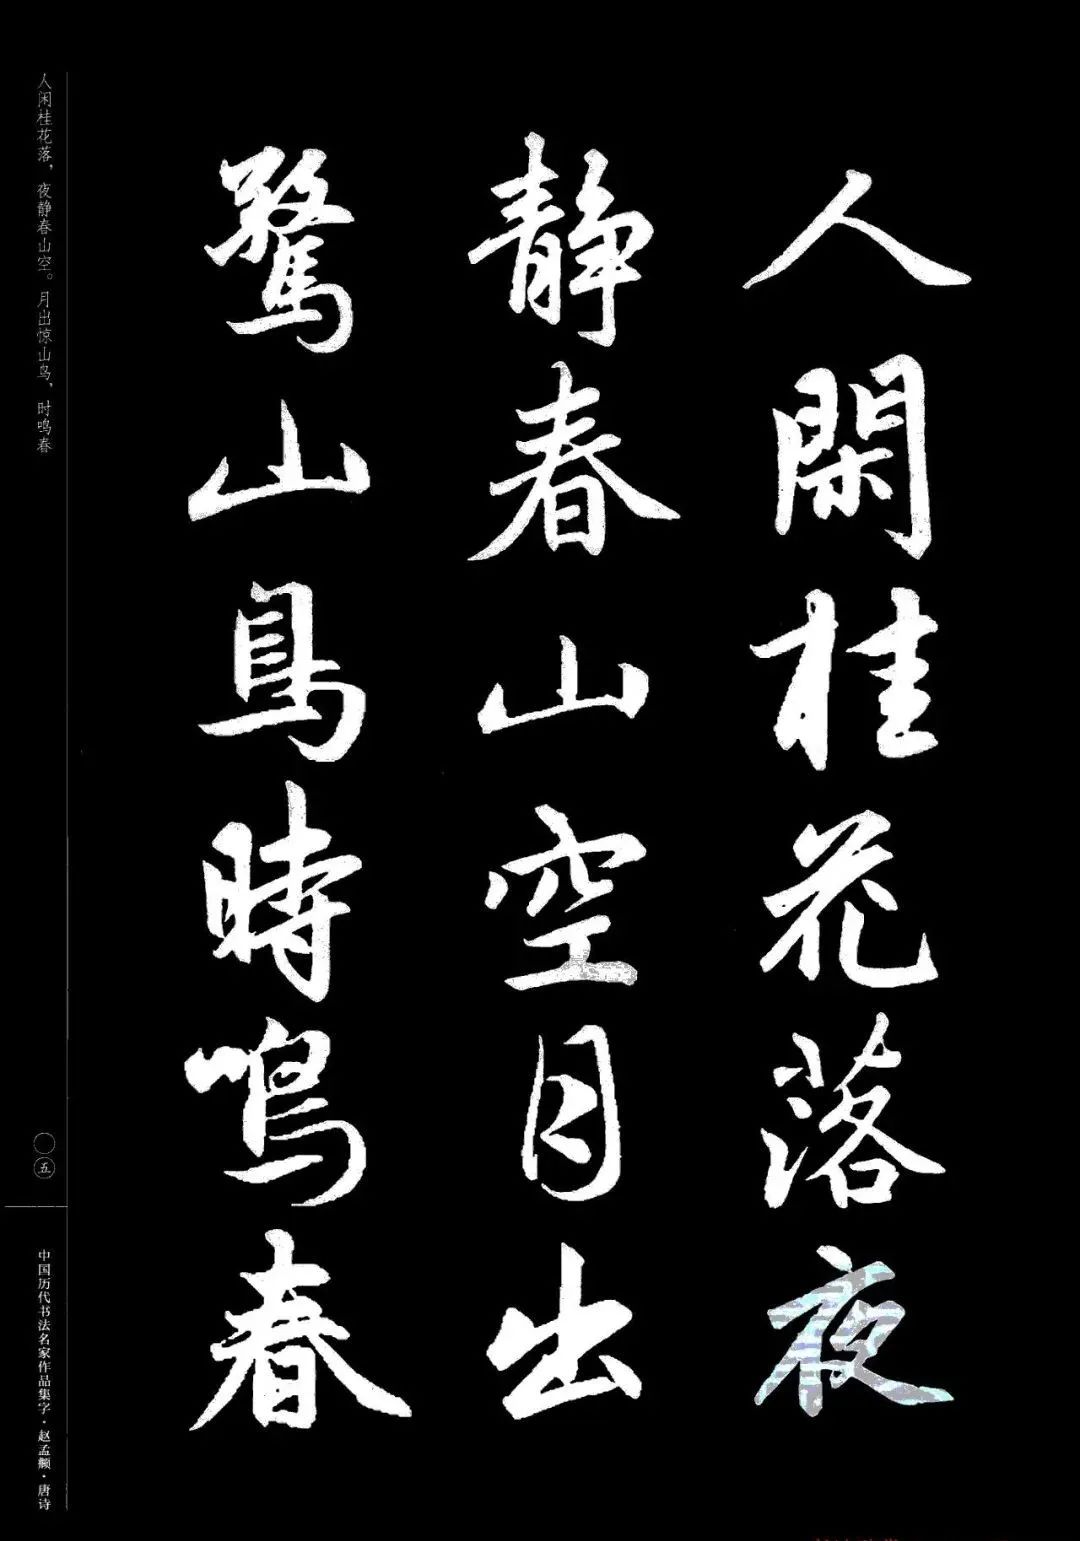 人閑桂花落夜
靜春山空月出
驚山鳥時鳴春
人闲桂花落，夜静春山空。月出惊山鸟，时鸣春
〇五
中国历代书法名家作品集字·赵孟頫·唐诗